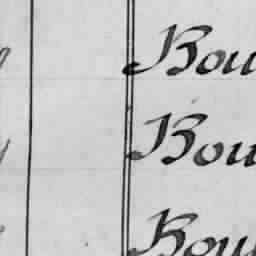 Bou
Bou
Bou